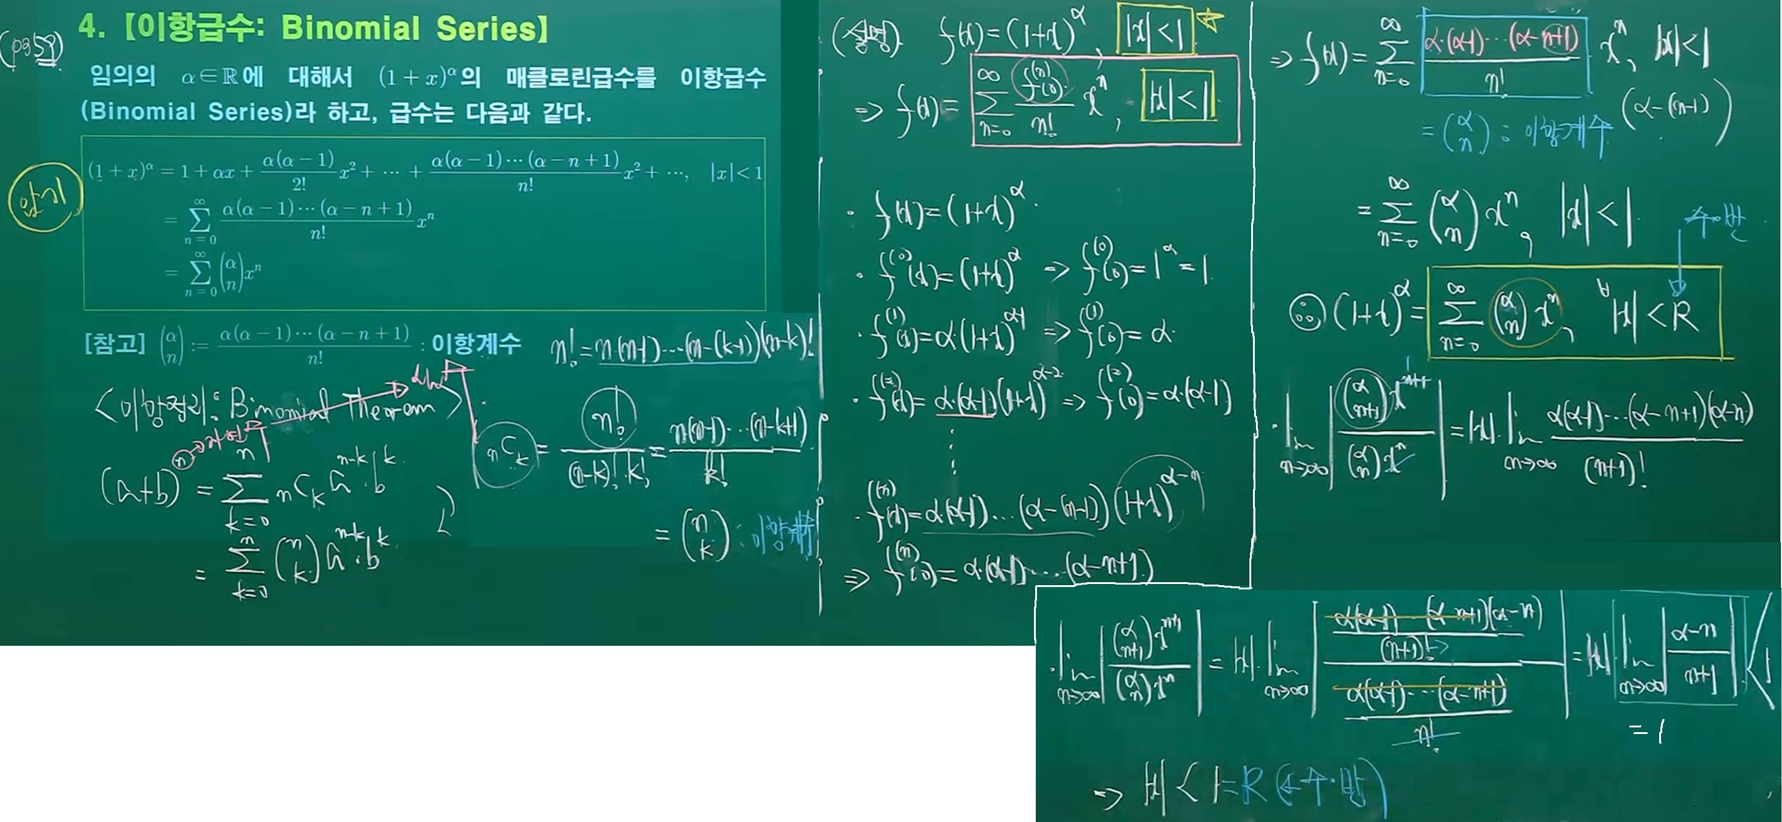 4. 【이항급수: Binomial Series】
(pg59)
임의의 α∈ℝ에 대해서 (1+x)^α의 매클로린급수를 이항급수
(Binomial Series)라 하고, 급수는 다음과 같다.
암기
(1+x)^α = 1+αx+ α(α−1)/2! x²+ ⋯ + α(α−1)⋯(α−n+1)/n! x²+⋯, |x|<1
= ∑_{n=0}^{∞} α(α−1)⋯(α−n+1)/n! x^n
= ∑_{n=0}^{∞} (α n) x^n
[참고] (α n) := α(α−1)⋯(α−n+1)/n! : 이항계수
n! = n(n-1)⋯(n-(k-1))(n-k)!
<이항정리: Binomial Theorem>
n→자연수
(a+b)^n = ∑_{k=0}^{n} nCk a^{n-k}·b^k
= ∑_{k=0}^{n} (n k) a^{n-k}·b^k
nCk = n!/((n-k)!·k!) = n(n-1)⋯(n-k+1)/k!
= (n k) : 이항계수
(설명). f(x)=(1+x)^α, |x|<1 ☆
⇒ f(x)= ∑_{n=0}^{∞} f^(n)(0)/n! x^n, |x|<1
· f(x)=(1+x)^α.
· f^(0)(x)=(1+x)^α ⇒ f^(0)(0)=1^α=1.
· f^(1)(x)=α·(1+x)^{α-1} ⇒ f^(1)(0)=α.
· f^(2)(x)=α·(α-1)(1+x)^{α-2} ⇒ f^(2)(0)=α·(α-1)
⋮
· f^(n)(x)=α·(α-1)⋯(α-(n-1))(1+x)^{α-n}
⇒ f^(n)(0)=α·(α-1)⋯(α-n+1)
⇒ f(x)= ∑_{n=0}^{∞} α·(α-1)⋯(α-n+1)/n! x^n, |x|<1
(α-(n-1))
= (α n) : 이항계수
= ∑_{n=0}^{∞} (α n) x^n, |x|<1
수·반
∴ (1+x)^α = ∑_{n=0}^{∞} (α n) x^n, ∀|x|<R
· lim_{n→∞} |(α n+1) x^{n+1} / (α n) x^n| = |x|·lim_{n→∞} α(α-1)⋯(α-n+1)(α-n)/(n+1)!
· lim_{n→∞} |(α n+1) x^{n+1} / (α n) x^n| = |x|·lim_{n→∞} |α(α-1)⋯(α-n+1)(α-n)/(n+1)! / α(α-1)⋯(α-n+1)/n!| = |x| lim_{n→∞} |α-n / n+1| < 1
= 1
⇒ |x| < 1 = R (수·반)